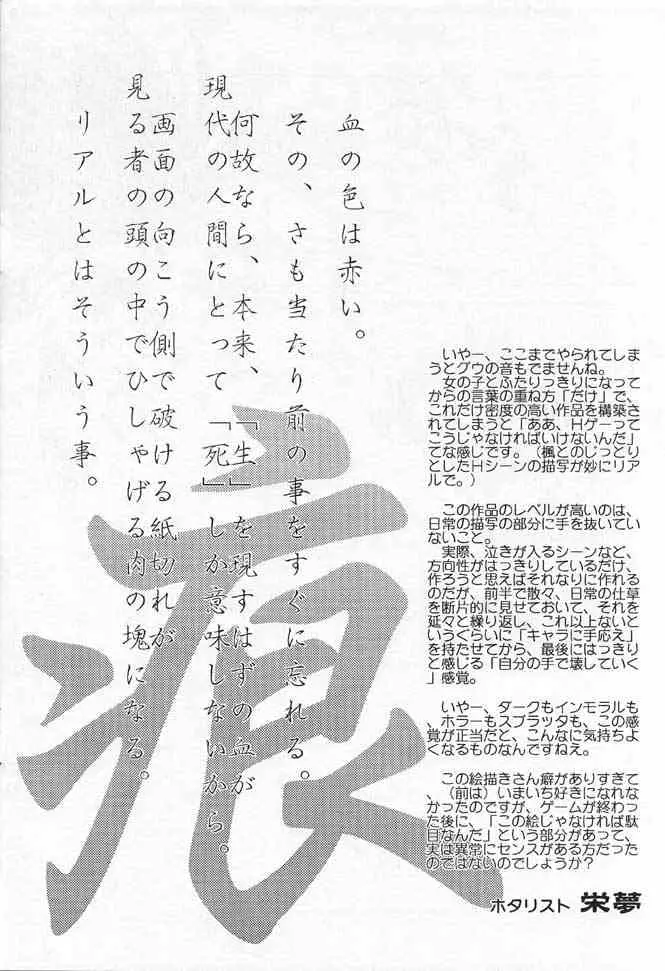 血の色は赤い。
その、さも当たり前の事をすぐに忘れる。
何故なら、本来、「生」を現すはずの血が
現代の人間にとって「死」しか意味しないから。
画面の向こう側で破ける紙切れが
見る者の頭の中でひしゃげる肉の塊になる。
リアルとはそういう事。
痕
いやー、ここまでやられてしま
うとグウの音もでませんね。
女の子とふたりっきりになって
からの言葉の重ね方「だけ」で、
これだけ密度の高い作品を構築さ
れてしまうと「ああ、Hゲーって
こうじゃなければいけないんだ」
てな感じです。（楓とのじっとり
としたHシーンの描写が妙にリア
ルで。）
この作品のレベルが高いのは、
日常の描写の部分に手を抜いてい
ないこと。
実際、泣きが入るシーンなど、
方向性がはっきりしているだけ、
作ろうと思えばそれなりに作れる
のだが、前半で散々、日常の仕草
を断片的に見せておいて、それを
延々と繰り返し、これ以上ないと
いうぐらいに「キャラに手応え」
を持たせてから、最後にはっきり
と感じる「自分の手で壊していく
」感覚。
いやー、ダークもインモラルも
、ホラーもスプラッタも、この感
覚が正当だと、こんなに気持ちよ
くなるものなんですねえ。
この絵描きさん癖がありすぎて
、（前は）いまいち好きになれな
かったのですが、ゲームが終わっ
た後に、「この絵じゃなければ駄
目なんだ」という部分があって、
実は異常にセンスがある方だった
のではないのでしょうか？
ホタリスト 栄夢